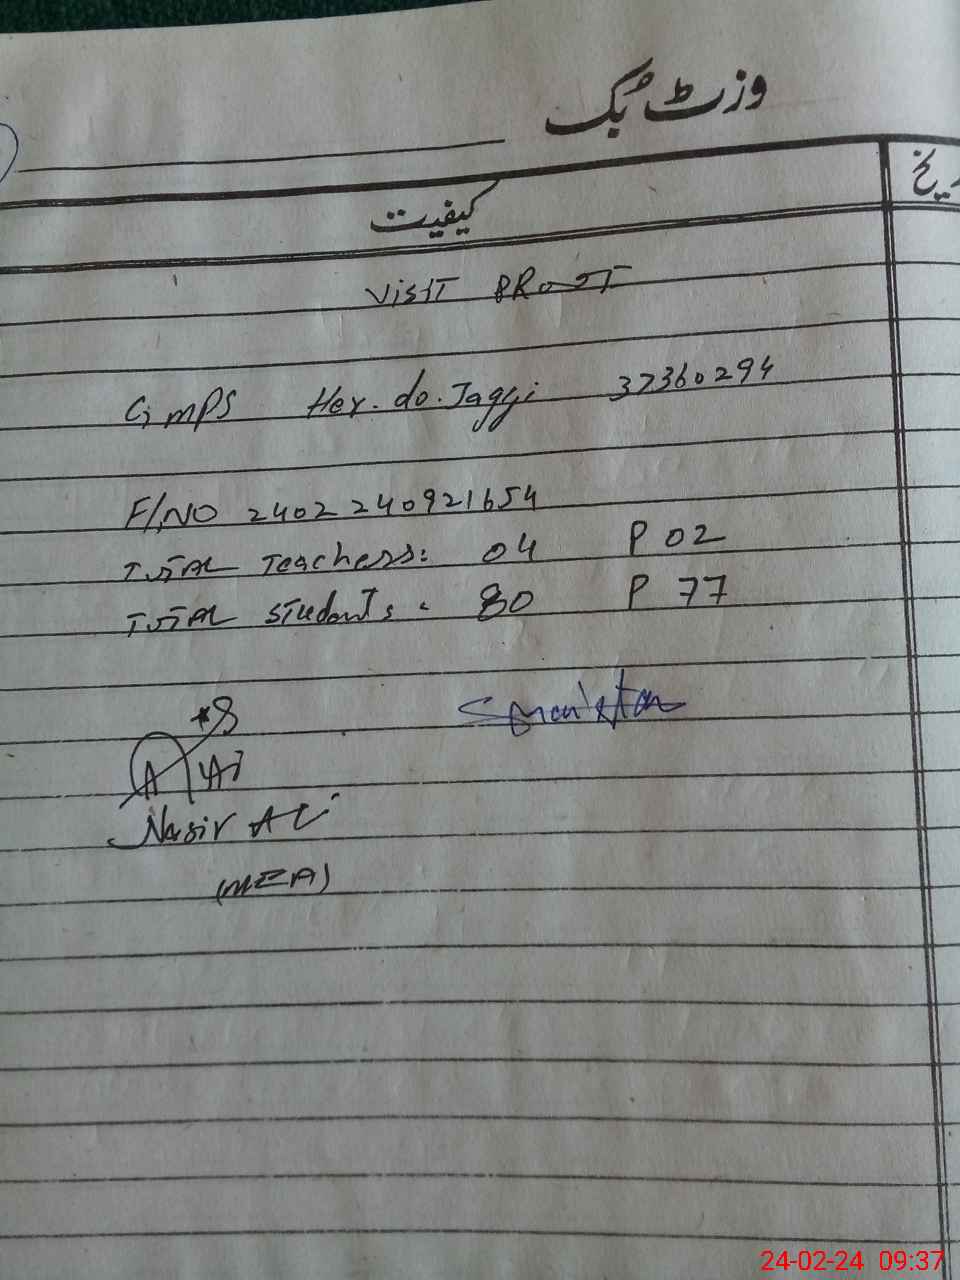 وزٹ بک
کیفیت
VISIT PROOT
GMPS Her. do. Jaggi 37360294
F/NO 2402240921654
TOTAL Teachers: 04 P 02
TOTAL Students: 80 P 77
Nasir Ali
(MEA)
24-02-24 09:37